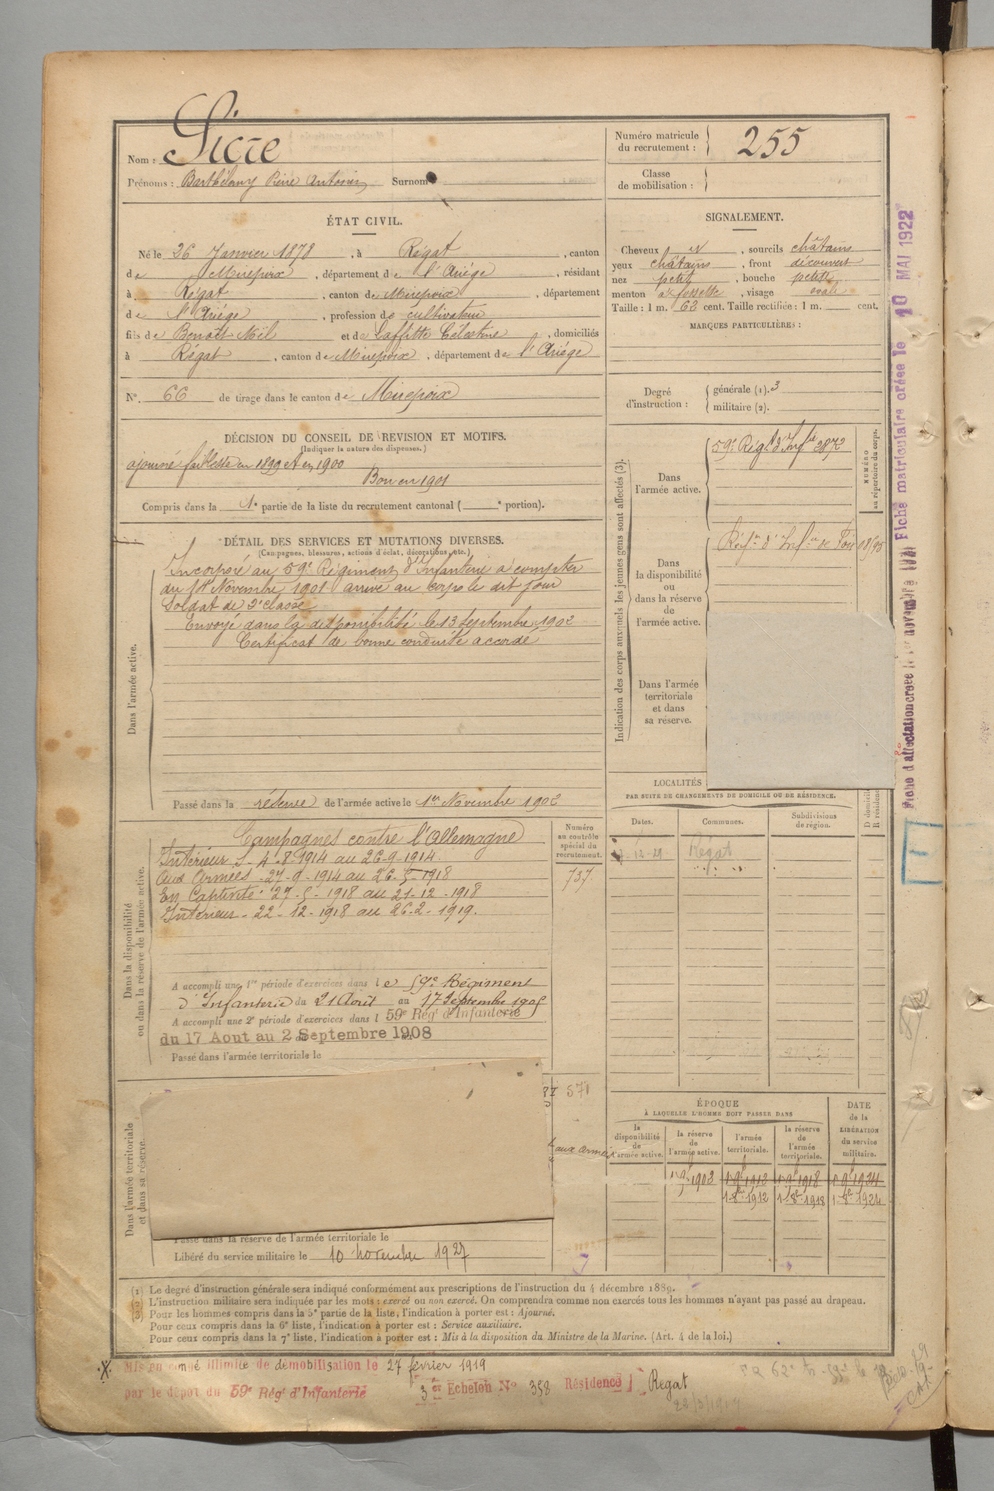 Nom : Sicre
Prénoms : Barthélemy Pierre Antonin Surnom
Numéro matricule du recrutement : 255
Classe de mobilisation :
ÉTAT CIVIL.
Né le 26 Janvier 1878, à Régat, canton
de Mirepoix, département de l'Ariège, résidant
à Régat, canton de Mirepoix, département
de l'Ariège, profession de cultivateur
fils de Benoît Mel et de Laffitte Célestine, domiciliés
à Régat, canton de Mirepoix, département de l'Ariège
N° 66 de tirage dans le canton de Mirepoix
SIGNALEMENT.
Cheveux et, sourcils châtains
yeux châtains, front découvert
nez petit, bouche petite
menton à fossette, visage ovale
Taille : 1 m. 62 cent. Taille rectifiée : 1 m. cent.
MARQUES PARTICULIÈRES :
Degré d'instruction : générale (1). 3
militaire (2).
DÉCISION DU CONSEIL DE REVISION ET MOTIFS.
(Indiquer la nature des dispenses.)
ajourné faiblesse en 1899 et en 1900
Bon en 1901
Compris dans la 1e partie de la liste du recrutement cantonal ( e portion).
DÉTAIL DES SERVICES ET MUTATIONS DIVERSES.
(Campagnes, blessures, actions d'éclat, décorations, etc.)
Dans l'armée active.
Incorporé au 59e Régiment d'Infanterie à compter
du 14 Novembre 1901 arrivé au corps le dit jour
Soldat de 2e classe
Envoyé dans la disponibilité le 13 septembre 1902
Certificat de bonne conduite accordé
Passé dans la réserve de l'armée active le 1er Novembre 1902
Indication des corps auxquels les jeunes gens sont affectés (3).
NUMÉRO au répertoire du corps.
Dans l'armée active.
59e Régt d'Infie 3872
Dans la disponibilité ou dans la réserve de l'armée active.
Régt d'Infie de Foix 08/95
Dans l'armée territoriale et dans sa réserve.
LOCALITÉS
PAR SUITE DE CHANGEMENTS DE DOMICILE OU DE RÉSIDENCE.
Dates. Communes. Subdivisions de région. D domicile R résidence
12-29 Régat
Dans la disponibilité ou dans la réserve de l'armée active.
Numéro au contrôle spécial du recrutement.
737
Campagnes contre l'Allemagne
Intérieur S 4-8-1914 au 26-9-1914.
Aux Armées - 27-9-1914 au 26-5-1918
En Captivité : 27-5-1918 au 21-12-1918
Intérieur - 22-12-1918 au 26-2-1919.
A accompli une 1re période d'exercices dans le 59e Régiment
d'Infanterie du 21 Août au 17 Septembre 1905
A accompli une 2e période d'exercices dans l 59e Régt d'Infanterie
du 17 Aout au 2 Septembre 1908
Passé dans l'armée territoriale le
Dans l'armée territoriale et dans sa réserve.
571
aux armées
ÉPOQUE
À LAQUELLE L'HOMME DOIT PASSER DANS
la disponibilité de l'armée active. la réserve de l'armée active. l'armée territoriale. la réserve de l'armée territoriale.
DATE de la LIBÉRATION du service militaire.
1-9-1902 1-9-1912 1-9-1918 1-9-1924
1-8-1912 1-8-1918 1-8-1924
Passé dans la réserve de l'armée territoriale le
Libéré du service militaire le 10 novembre 1927
(1) Le degré d'instruction générale sera indiqué conformément aux prescriptions de l'instruction du 4 décembre 1889.
(2) L'instruction militaire sera indiquée par les mots : exercé ou non exercé. On comprendra comme non exercés tous les hommes n'ayant pas passé au drapeau.
(3) Pour les hommes compris dans la 5e partie de la liste, l'indication à porter est : Ajourné.
Pour ceux compris dans la 6e liste, l'indication à porter est : Service auxiliaire.
Pour ceux compris dans la 7e liste, l'indication à porter est : Mis à la disposition du Ministre de la Marine. (Art. 4 de la loi.)
Mis en congé illimité de démobilisation le 27 février 1919
par le dépôt du 59e Régt d'Infanterie 3e Echelon N° 358 Résidence Régat
Fiche matriculaire créée le 10 MAI 1922
Fiche d'affectation créée le 1er novembre